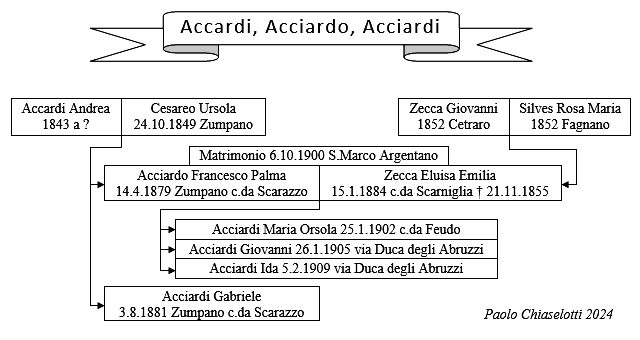 Accardi, Acciardo, Acciardi
Accardi Andrea
1843 a ?
Cesareo Ursola
24.10.1849 Zumpano
Zecca Giovanni
1852 Cetraro
Silves Rosa Maria
1852 Fagnano
Matrimonio 6.10.1900 S.Marco Argentano
Acciardo Francesco Palma
14.4.1879 Zumpano c.da Scarazzo
Zecca Eluisa Emilia
15.1.1884 c.da Scarniglia † 21.11.1855
Acciardi Maria Orsola 25.1.1902 c.da Feudo
Acciardi Giovanni 26.1.1905 via Duca degli Abruzzi
Acciardi Ida 5.2.1909 via Duca degli Abruzzi
Acciardi Gabriele
3.8.1881 Zumpano c.da Scarazzo
Paolo Chiaselotti 2024